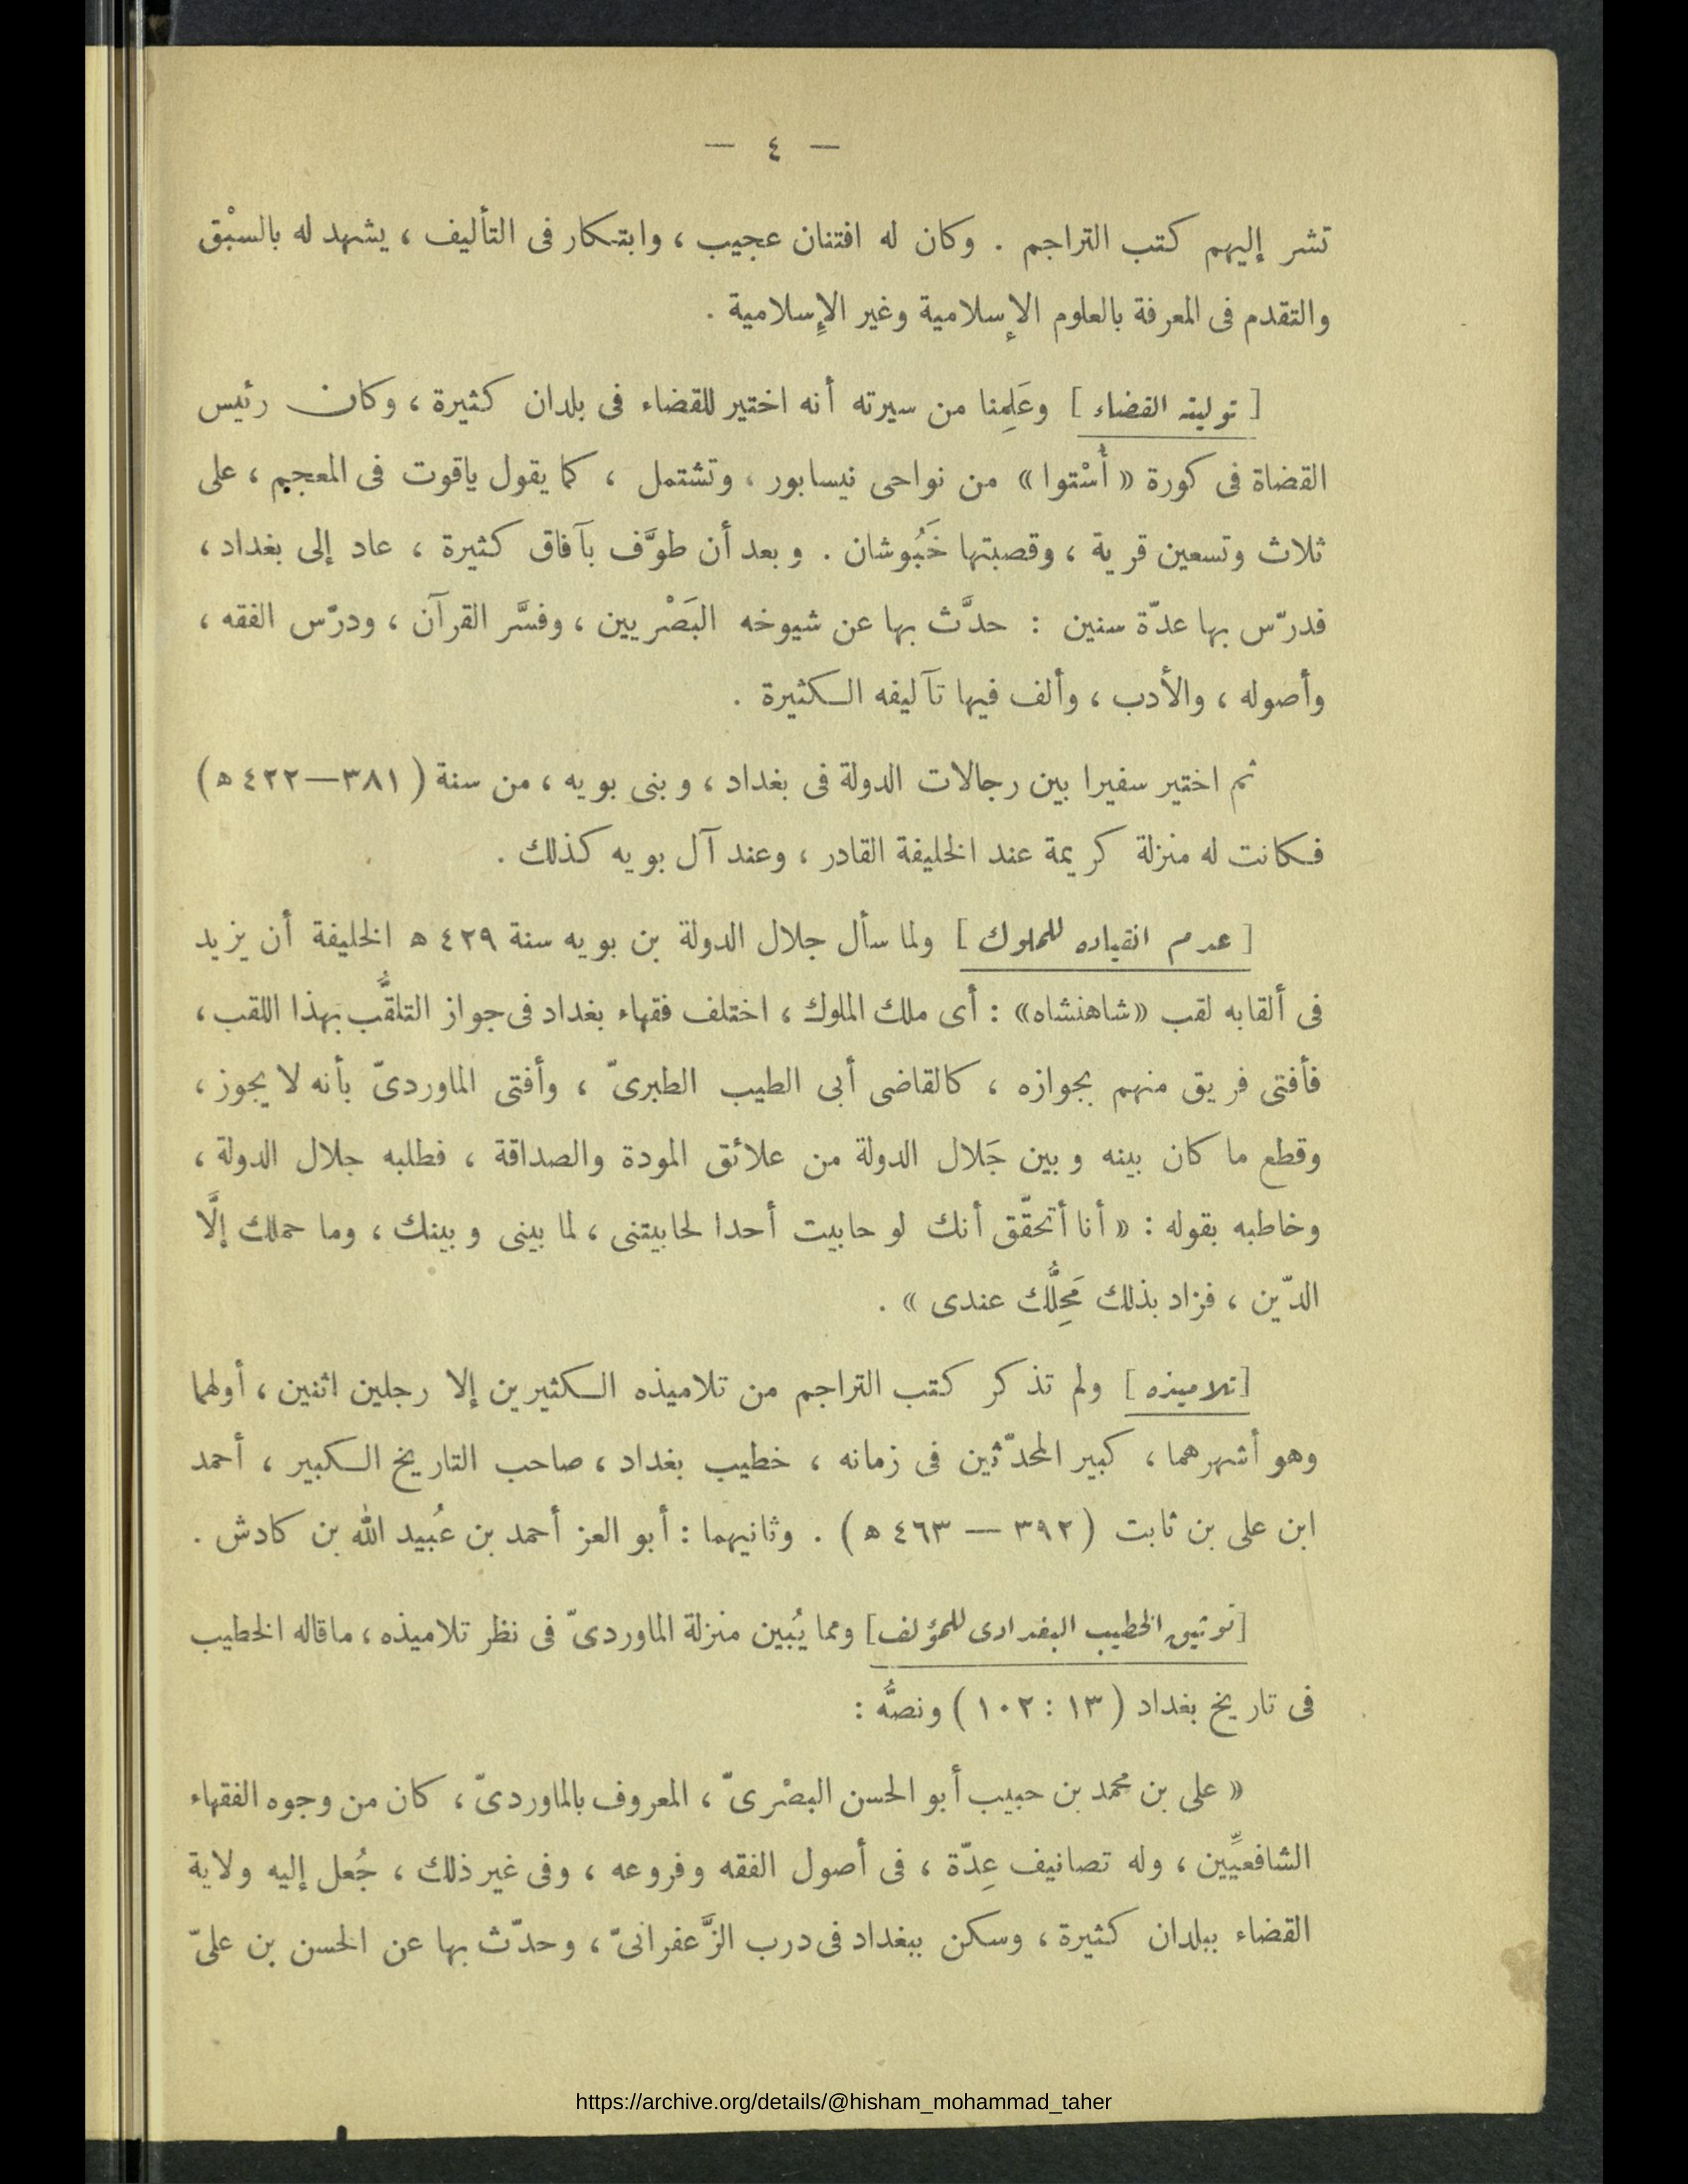 — ٤ —
تشر إليهم كتب التراجم . وكان له افتنان عجيب ، وابتكار فى التأليف ، يشهد له بالسبْق
والتقدم فى المعرفة بالعلوم الإسلامية وغير الإسلامية .
[ توليته القضاء ] وعَلِمنا من سيرته أنه اختير للقضاء فى بلدان كثيرة ، وكان رئيس
القضاة فى كورة « أُسْتوا » من نواحى نيسابور ، وتشتمل ، كما يقول ياقوت فى المعجم ، على
ثلاث وتسعين قرية ، وقصبتها خَبُوشان . وبعد أن طوَّف بآفاق كثيرة ، عاد إلى بغداد ،
فدرّس بها عدّة سنين : حدَّث بها عن شيوخه البَصْريين ، وفسَّر القرآن ، ودرّس الفقه ،
وأصوله ، والأدب ، وألف فيها تآليفه الكثيرة .
ثم اختير سفيرا بين رجالات الدولة فى بغداد ، وبنى بويه ، من سنة ( ٣٨١—٤٢٢ ه )
فكانت له منزلة كريمة عند الخليفة القادر ، وعند آل بويه كذلك .
[ عدم انقياده للملوك ] ولما سأل جلال الدولة بن بويه سنة ٤٢٩ ه الخليفة أن يزيد
فى ألقابه لقب «شاهنشاه» : أى ملك الملوك ، اختلف فقهاء بغداد فى جواز التلقُّب بهذا اللقب ،
فأفتى فريق منهم بجوازه ، كالقاضى أبى الطيب الطبرىّ ، وأفتى الماوردىّ بأنه لا يجوز ،
وقطع ما كان بينه وبين جَلال الدولة من علائق المودة والصداقة ، فطلبه جلال الدولة ،
وخاطبه بقوله : « أنا أتحقّق أنك لو حابيت أحدا لحابيتنى ، لما بينى وبينك ، وما حملك إلَّا
الدّين ، فزاد بذلك مَحِلُّك عندى » .
[تلاميذه ] ولم تذكر كتب التراجم من تلاميذه الكثيرين إلا رجلين اثنين ، أولهما
وهو أشهرهما ، كبير المحدّثين فى زمانه ، خطيب بغداد ، صاحب التاريخ الكبير ، أحمد
ابن على بن ثابت ( ٣٩٢ — ٤٦٣ ه ) . وثانيهما : أبو العز أحمد بن عُبيد الله بن كادش .
[توثيق الخطيب البغدادى للمؤلف] ومما يُبين منزلة الماوردىّ فى نظر تلاميذه ، ماقاله الخطيب
فى تاريخ بغداد ( ١٣ : ١٠٢ ) ونصُّه :
« على بن محمد بن حبيب أبو الحسن البصْرىّ ، المعروف بالماوردىّ ، كان من وجوه الفقهاء
الشافعيِّين ، وله تصانيف عِدّة ، فى أصول الفقه وفروعه ، وفى غير ذلك ، جُعل إليه ولاية
القضاء ببلدان كثيرة ، وسكن ببغداد فى درب الزَّعفرانىّ ، وحدّث بها عن الحسن بن علىّ
https://archive.org/details/@hisham_mohammad_taher